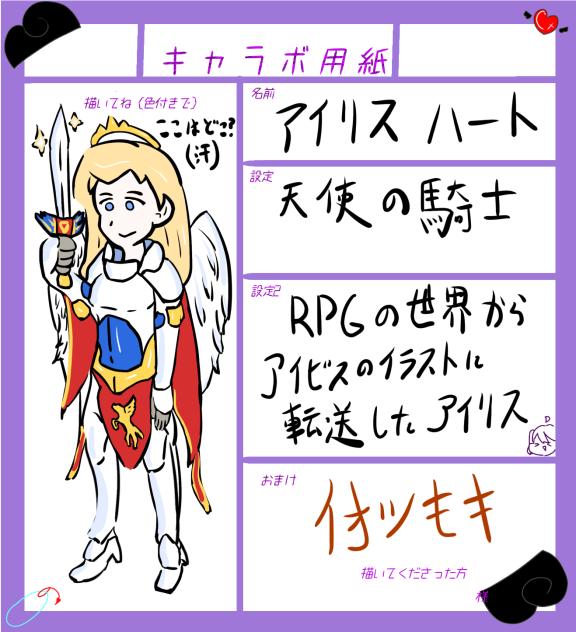 キャラボ用紙
描いてね（色付きで）
ここはどこ?
(汗)
名前
アイリス ハート
設定
天使の騎士
設定2
RPGの世界から
アイビスのイラストに
転送したアイリス
おまけ
描いてくださった方
様